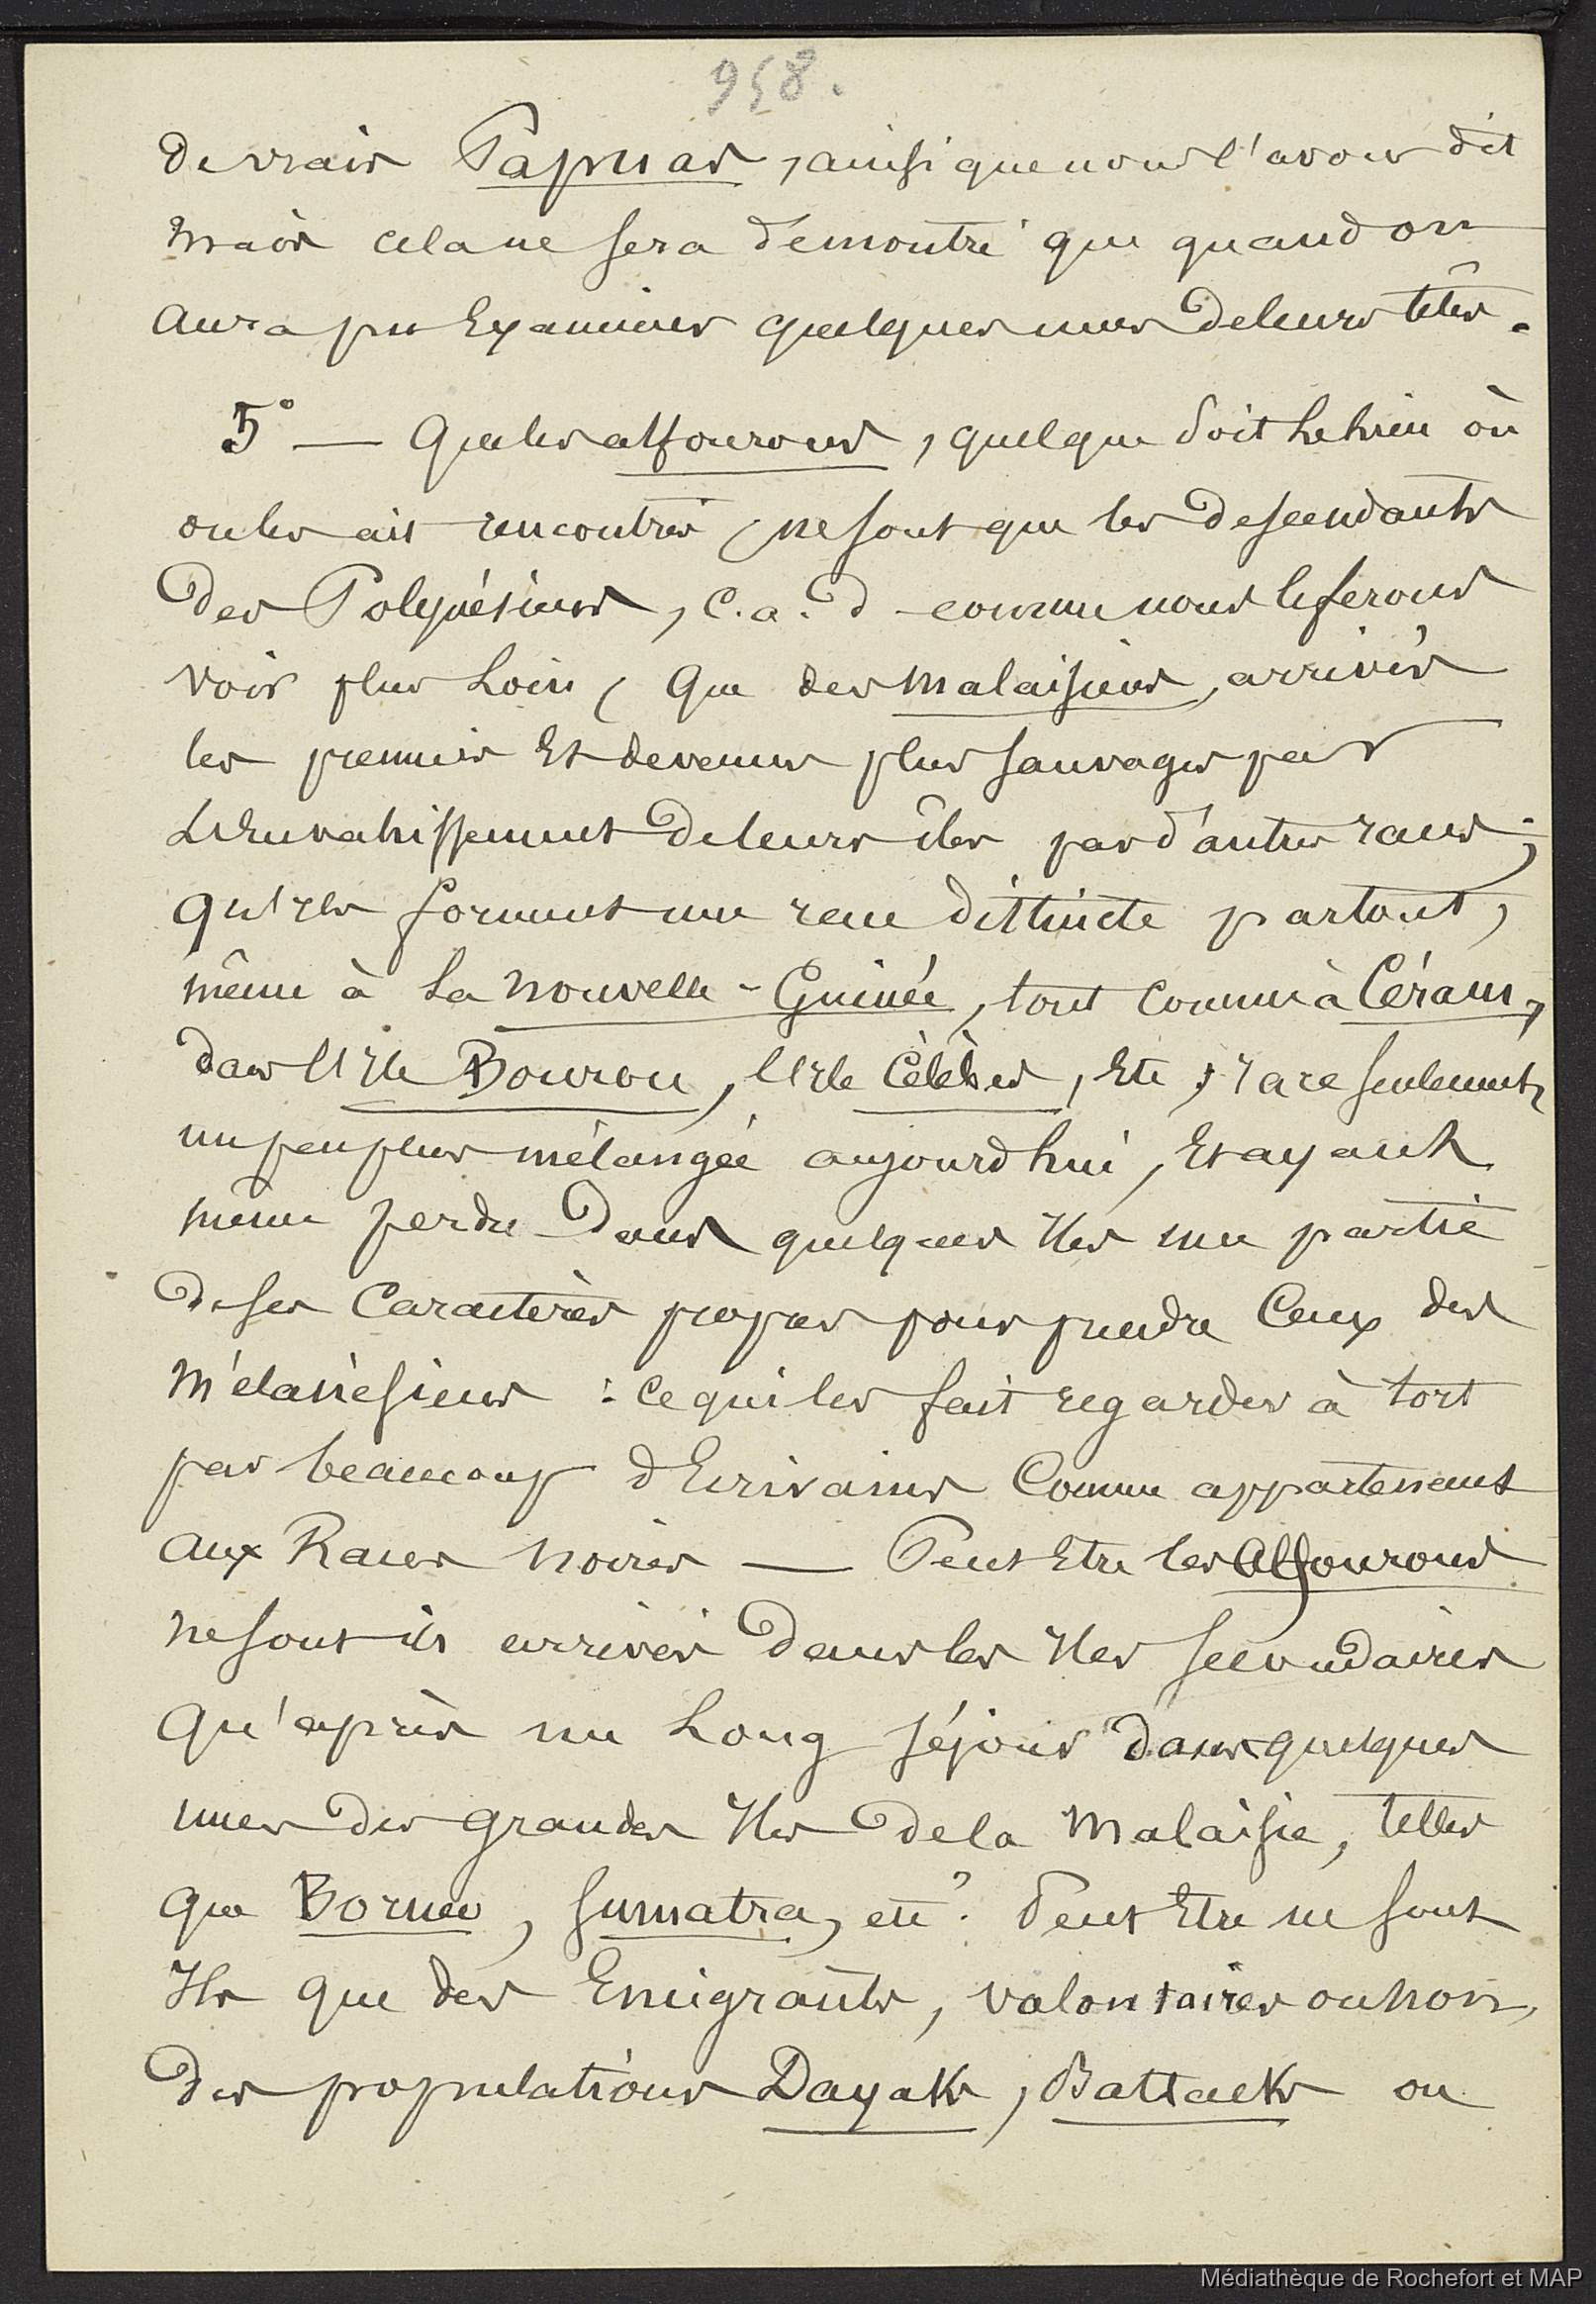 958.
de vrais Papuas, ainsi que nous l'avons dit
mais cela ne sera démontré que quand on
aura pu Examiner quelques unes de leurs têtes.
5° — Que les alfourous, quelque soit le lieu où
on les ait rencontrés, ne sont que les descendants
des Polynésiens, c.a.d - comme nous le ferons
voir plus Loin, que des malaisiens, arrivés
les premiers Et devenus plus sauvages par
L'Envahissement de leurs îles par d'autres races;
qu'ils forment une race distincte partout,
même à La nouvelle-Guinée, tout comme à Céram,
dans l'Ile Bourou, l'Ile Célèbes, Etc; race seulement
un peu plus mélangée aujourd'hui, Et ayant
même perdu dans quelques Iles une partie
de ses Caractères propres pour prendre Ceux des
Mélanésiens : ce qui les fait regarder à tort
par beaucoup d'Ecrivains Comme appartenant
aux Races noires — Peut Etre les Alfourous
ne sont ils arrivés dans les Iles secondaires
qu'après un Long séjour dans quelques
unes des grandes Iles de la Malaisie, telles
que Bornéo, Sumatra, etc? Peut Etre ne sont
Ils que des Emigrants, volontaires ou non,
des populations Dayaks, Battacks ou
Médiathèque de Rochefort et MAP